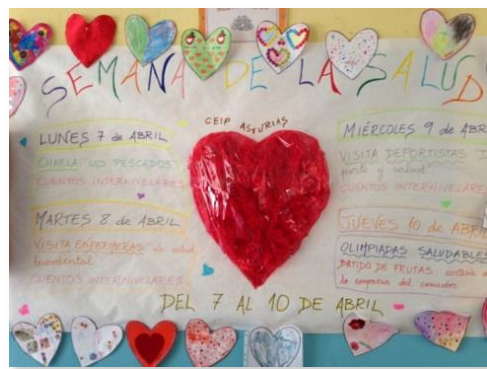 SEMANA DE LA SALUD
CEIP ASTURIAS
LUNES 7 de ABRIL
CHARLA LOS PESCADOS
CUENTOS INTERNIVELARES
MARTES 8 de ABRIL
VISITA ENFERMERAS la salud
bucodental
CUENTOS INTERNIVELARES
MIÉRCOLES 9 de ABR
VISITA DEPORTISTAS D
porte y salud
CUENTOS INTERNIVELARES
JUEVES 10 de ABRI
OLIMPIADAS SALUDABLES
BATIDO DE FRUTAS
la empresa del comedor
DEL 7 AL 10 DE ABRIL